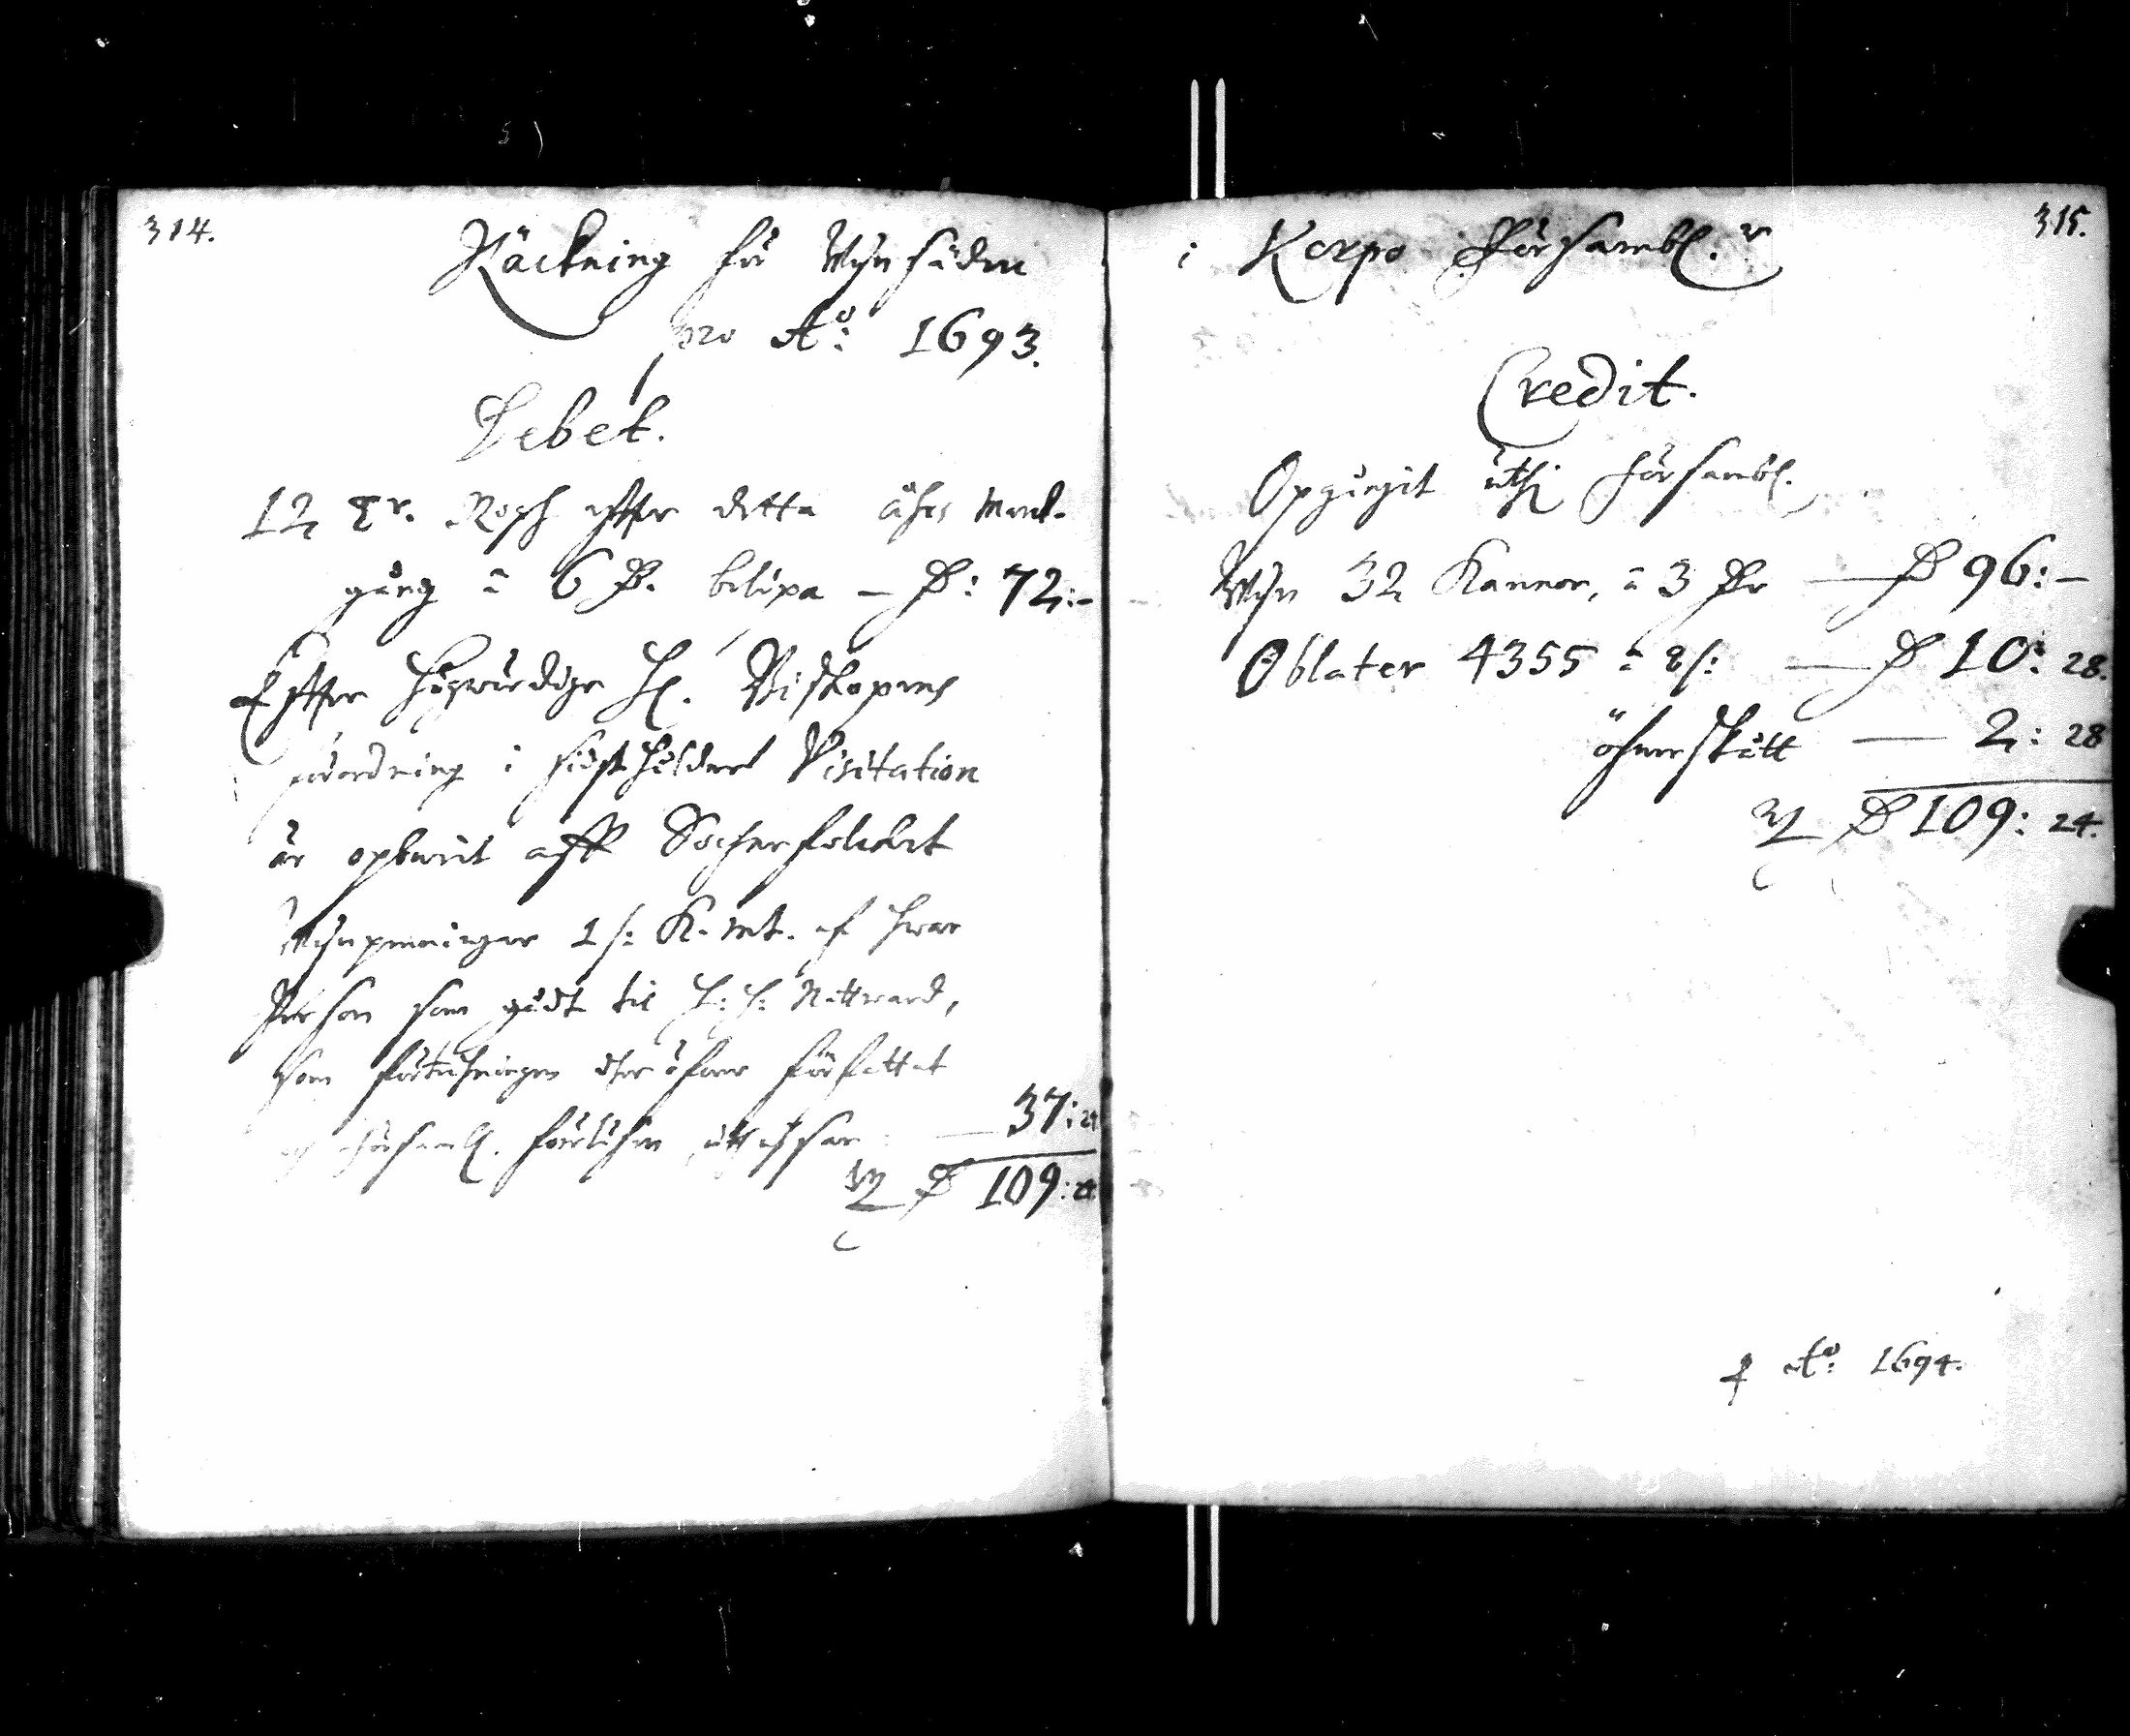 314.
Räckning för Wijnsäden
pro Aº: 1693.
Debet.
12 Tr. Rogh effter detta åhrs mark-
gång â 6 D. belöpa — D: 72:-
Effter Högwürdige H. Biskopens
förordning i sidsthåldne Visitation
är opburit aff Sochnefolcket
Wijnpenningar 1 /: K. mt. af hwar
Person som gådt til H: H: Nattward,
som förtekningen ther öfwer författat
församl. uthwijsar — 37: 24
D 109: 24.
315.
i Korpo Försambl.
Credit.
Opgångit uthj Försambl.
Wijn 32 Kannor, â 3 Dr — D 96: —
Oblater 4355 â 8 /: — D 10: 28.
öfwerskått — 2: 28
D 109: 24.
Aº: 1694.